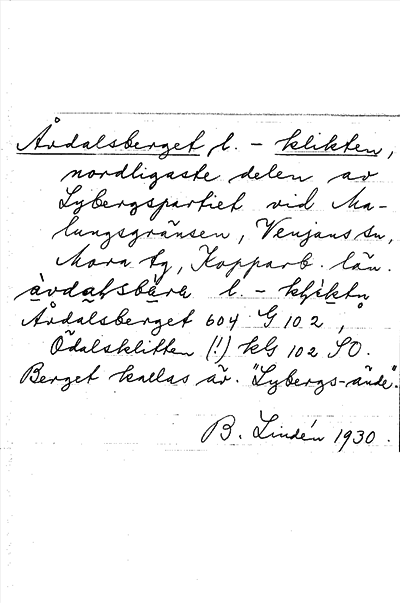 Årdalsberget l. - klikten,
nordligaste delen av
Lybergspartiet vid Ma-
lungsgränsen, Venjans sn,
Mora tg, Kopparb. län.
l. -
Årdalsberget 604 G 10 2,
Ödalsklitten (!) kG 102 SO.
Berget kallas äv. "Lybergs-ände".
B. Lindén 1930.